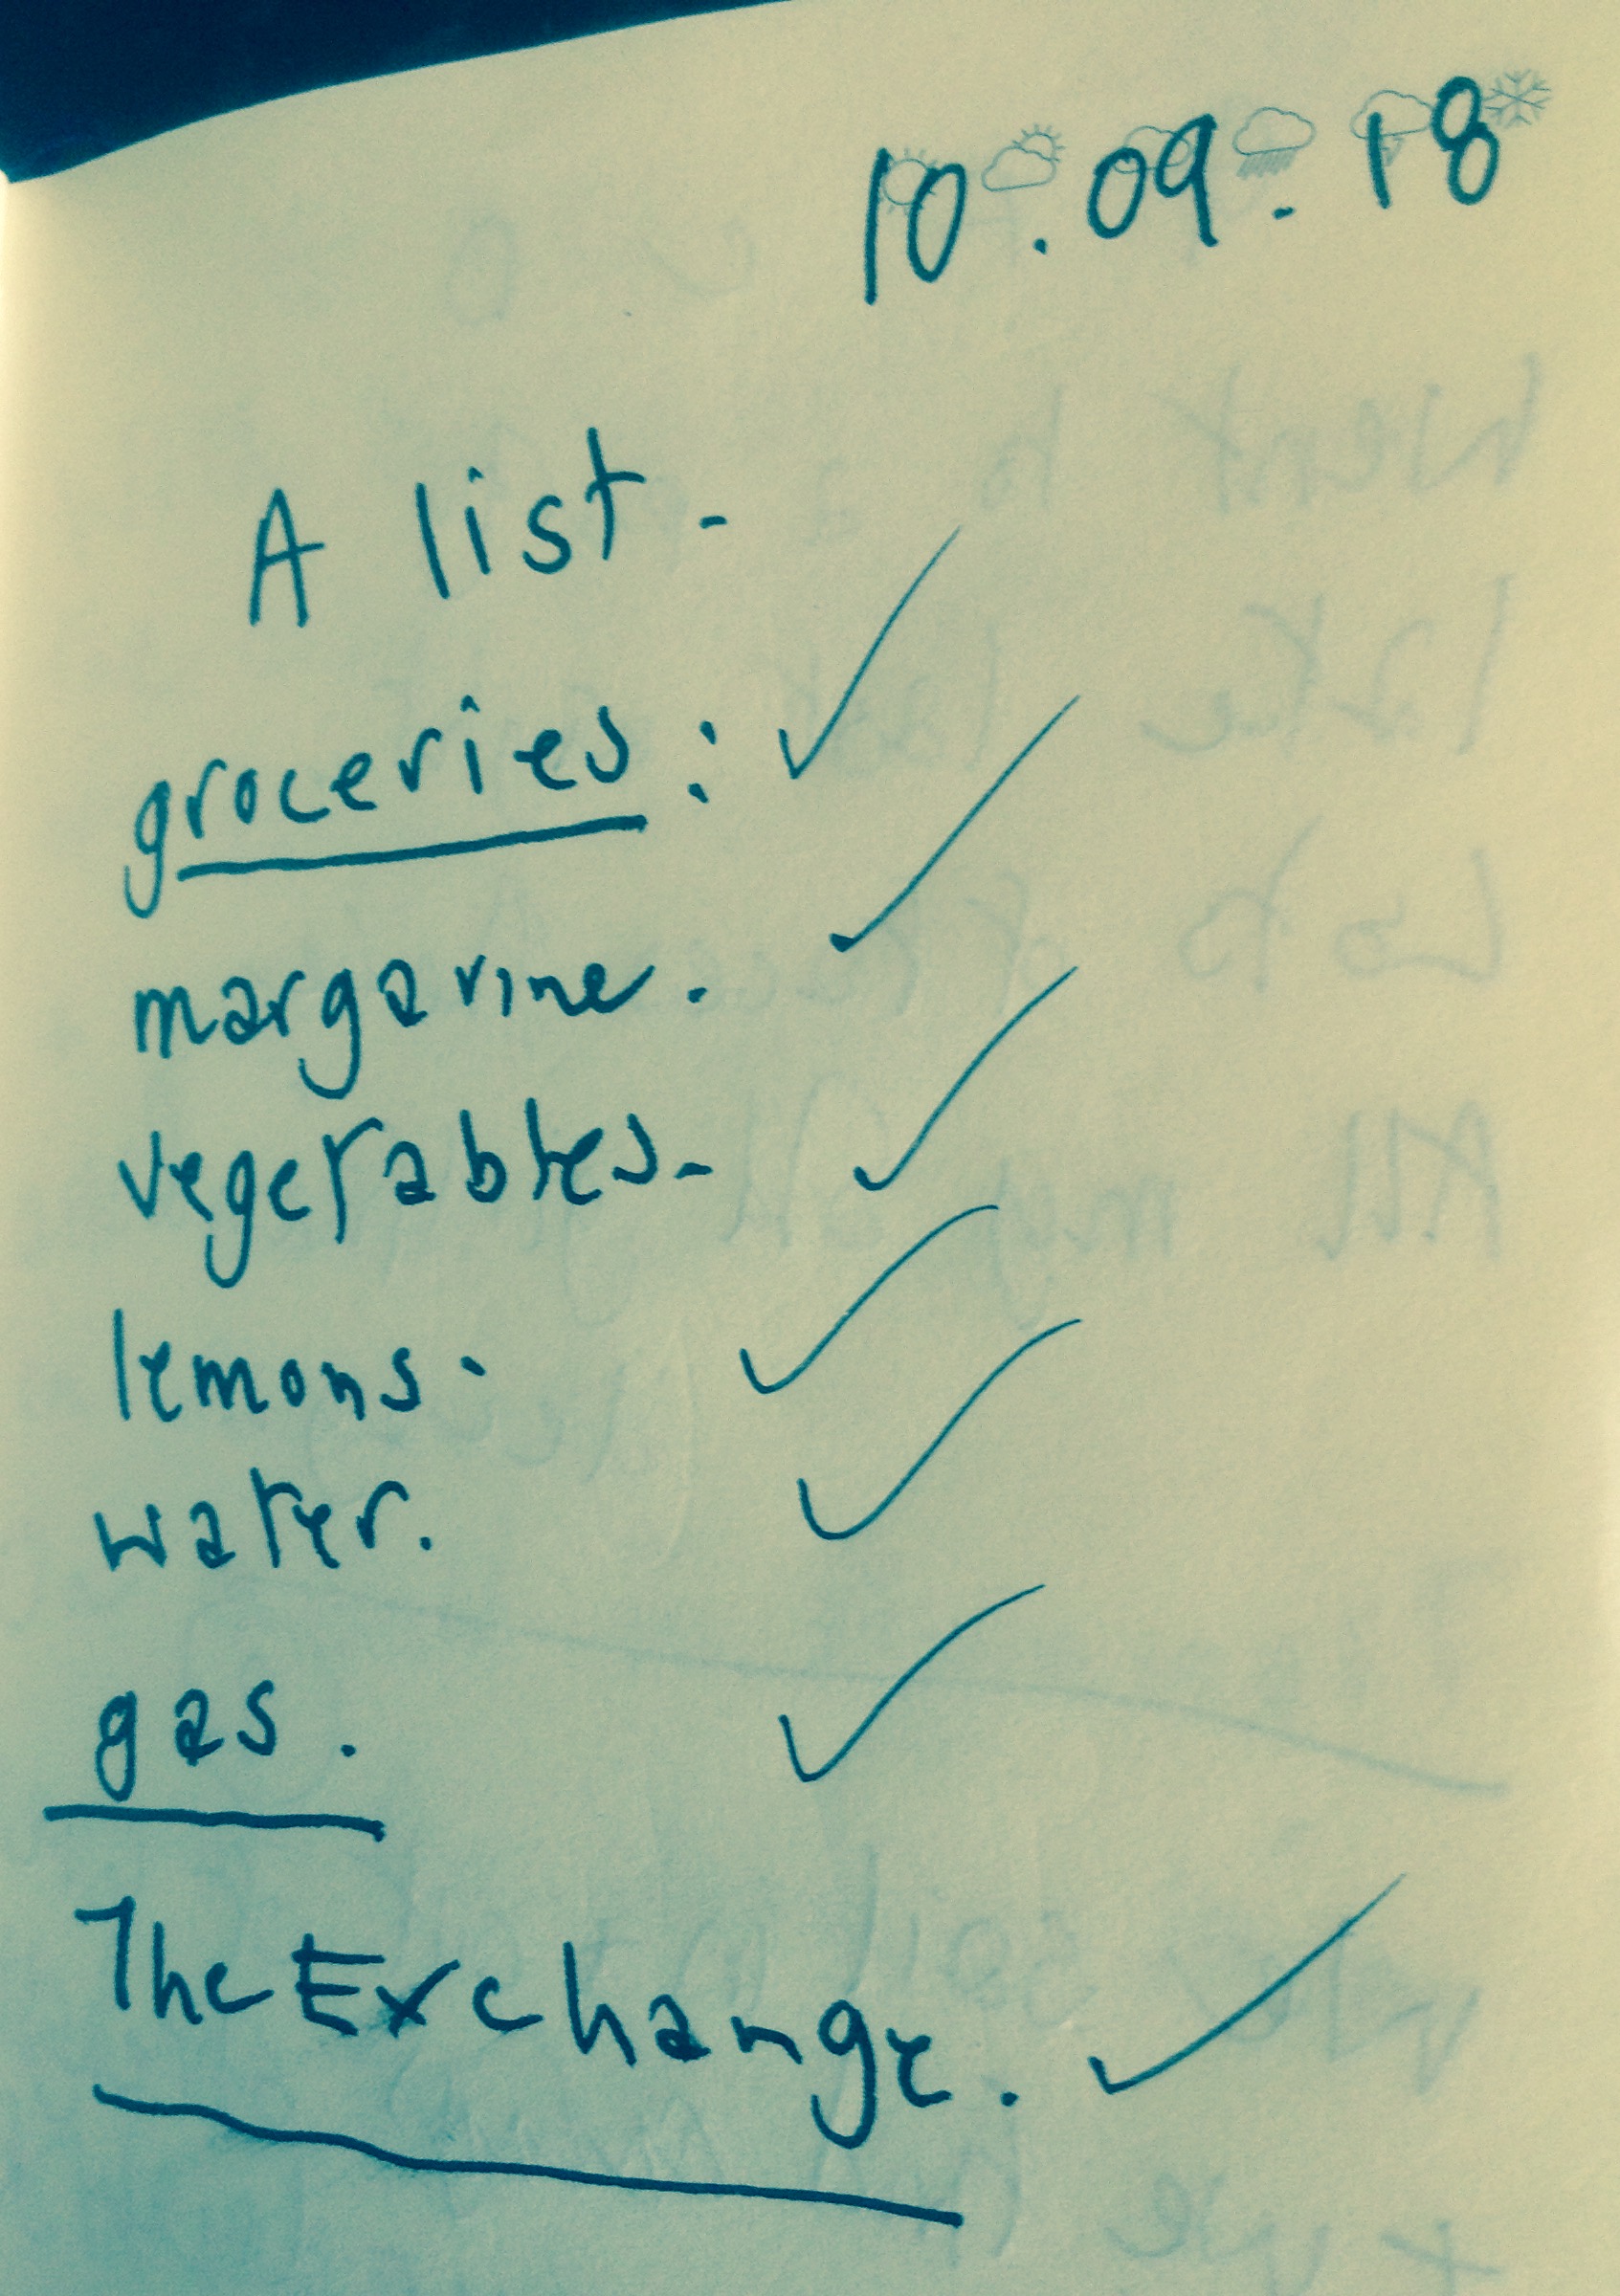 10.09.18
A list-
groceries:
margarine.
vegetables-
lemons.
water.
gas.
The Exchange.